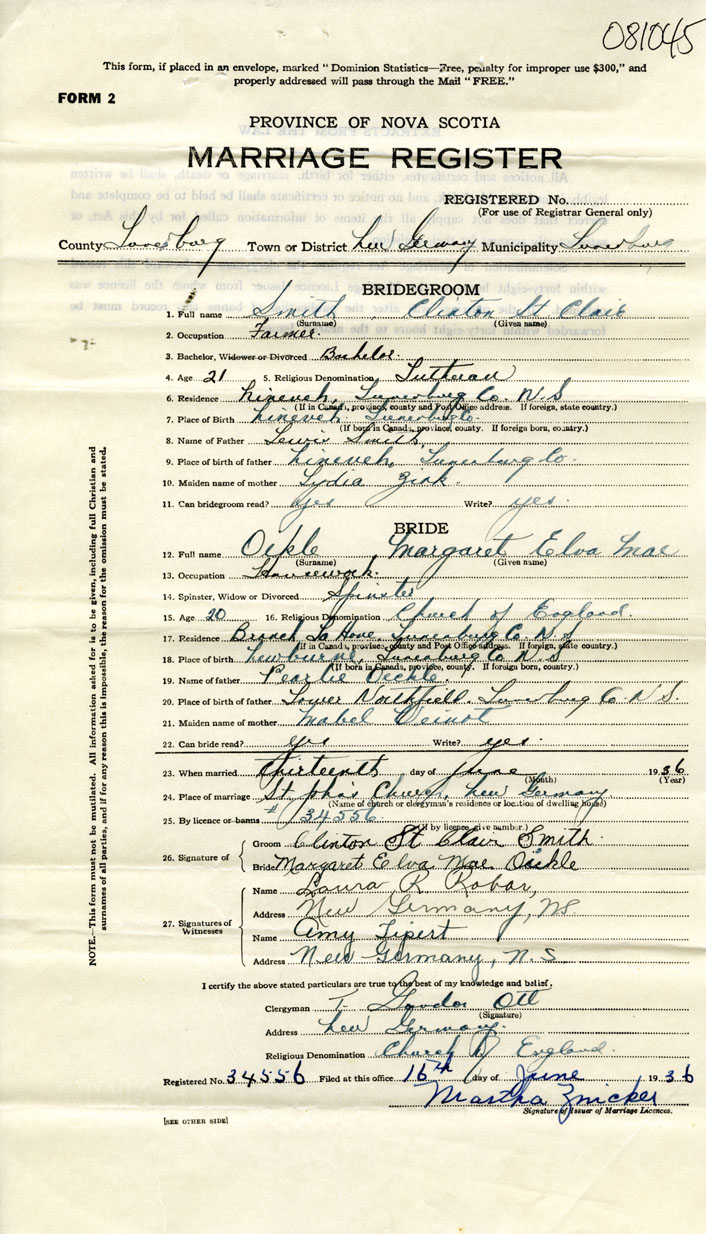 081045
This form, if placed in an envelope, marked "Dominion Statistics—Free, penalty for improper use $300," and
properly addressed will pass through the Mail "FREE."
FORM 2
PROVINCE OF NOVA SCOTIA
MARRIAGE REGISTER
REGISTERED No.
(For use of Registrar General only)
County Lunenburg Town or District New Germany Municipality Lunenburg
BRIDEGROOM
1. Full name Smith Clinton St Clair
(Surname) (Given name)
2. Occupation Farmer.
3. Bachelor, Widower or Divorced Bachelor.
4. Age 21 5. Religious Denomination Lutheran
6. Residence Nineveh, Lunenburg Co. N.S
(If in Canada, province, county and Post Office address. If foreign, state country.)
7. Place of Birth Nineveh, Lunenburg Co.
(If born in Canada, province, county. If foreign born, country.)
8. Name of Father Lewis Smith,
9. Place of birth of father Nineveh, Lunenburg Co.
10. Maiden name of mother Lydia Zink.
11. Can bridegroom read? yes Write? yes.
BRIDE
12. Full name Oikle Margaret Elva Mae
(Surname) (Given name)
13. Occupation Housework.
14. Spinster, Widow or Divorced Spinster
15. Age 20 16. Religious Denomination Church of England.
17. Residence Branch La Have, Lunenburg Co. N.S
(If in Canada, province, county and Post Office address. If foreign, state country.)
18. Place of birth Newburne, Lunenburg Co. N.S
(If born in Canada, province, county. If foreign born, country.)
19. Name of father Pearlie Oickle.
20. Place of birth of father Lower Northfield, Lunenburg Co. N.S.
21. Maiden name of mother Mabel Veinot
22. Can bride read? yes Write? yes.
23. When married thirteenth day of June 1936
(Month) (Year)
24. Place of marriage St Johns Church, New Germany
(Name of church or clergyman's residence or location of dwelling house)
25. By licence or banns # 34556
(If by licence give number.)
26. Signature of Groom Clinton St Clair Smith
Bride Margaret Elva Mae Oickle
27. Signatures of Witnesses Name Laura R Robar,
Address New Germany, NS
Name Amy Lipert
Address New Germany, N.S
I certify the above stated particulars are true to the best of my knowledge and belief.
Clergyman T. Gordon Ott
(Signature)
Address New Germany.
Religious Denomination Church of England.
Registered No. 34556 Filed at this office 16th day of June 1936
Martha Zwicker
Signature of Issuer of Marriage Licences.
[SEE OTHER SIDE]
NOTE.—This form must not be mutilated. All information asked for is to be given, including full Christian and
surnames of all parties, and if for any reason this is impossible, the reason for the omission must be stated.